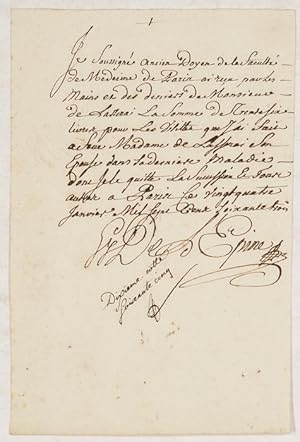 1
Je Soussigné ancien Doyen de la faculté
de Medecine de Paris ai reçu par les
mains et des deniers de Monsieur
de Lassrai La Somme de trente six
livres pour Les Visites que J'ai fait
a feue Madame de Lassrai Son
Epouse dans la derniere Maladie
dont Je le quitte La Succession Et tous
autres a Paris Le Vingtquatre
Janvier Mil Sept Cent Soixante trois
De L Epine
Dixieme cotte
Soixante cinq